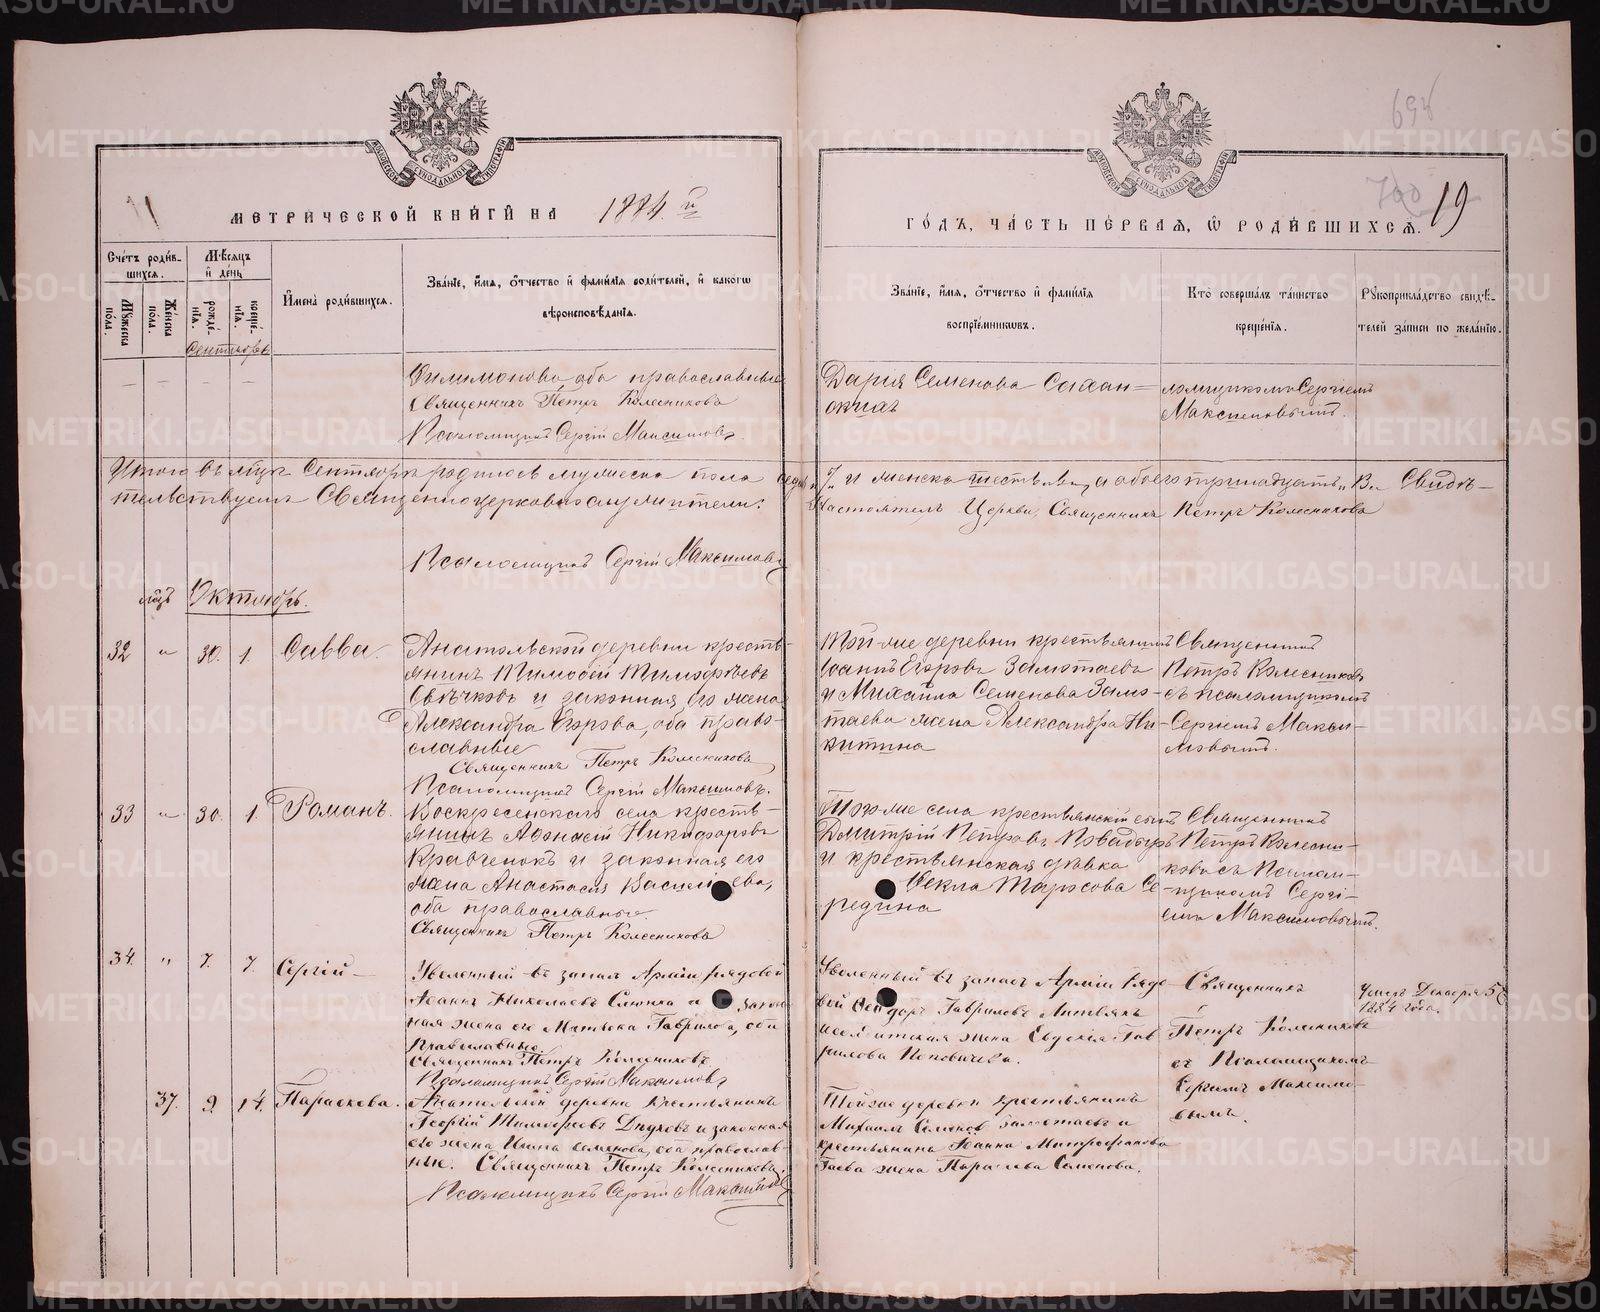 МЕТРИЧЕСКОЙ КНИГИ НА 1884.й
ГОДЪ, ЧАСТЬ ПЕРВАЯ, Ѡ РОДИВШИХСЯ.
19
698
700
Счетъ родившихся.
Мѣсяцъ и день
Мужеска пола.
Женска пола.
рожденія.
крещенія.
Имена родившихся.
Званіе, имя, отчество и фамилія родителей, и какогѡ
вѣроисповѣданія.
Званіе, имя, отчество и фамилія
воспріемниковъ.
Кто совершалъ таинство
крещенія.
Рукоприкладство свидѣ-
телей записи по желанію.
Сентябрь
Филимонова оба православные
Священникъ Петръ Колесниковъ
Псаломщикъ Сергій Максимовъ.
Дарія Семенова Сахан=
ломщикомъ Сергіемъ
Максимовымъ.
Итого въ мцѣ Сентябрѣ родилось мужеска пола седмь 7. и женска шесть, а обоего тринадцать 13. Свидѣ-
тельствуемъ Священноцерковнослужители:
Настоятель Церкви, Священникъ Петръ Колесниковъ
Псаломщикъ Сергій Максимовъ
мцъ Октябрь.
32 " 30. 1. Савва.
Анатольской деревни кресть-
янинъ Тимофей Тимофѣевъ
Свѣчковъ и законная его жена
Александра Егорова, оба право-
славные
Священникъ Петръ Колесниковъ
Псаломщикъ Сергій Максимовъ.
Той-же деревни крестьянинъ
Іоаннъ Егоровъ Заметаевъ
и Михаила Семенова Заме-
таева жена Александра Ни-
китина
Священникъ
Петръ Колесниковъ
съ псаломщикомъ
Сергіемъ Макси-
мовымъ.
33 " 30. 1. Романъ.
Воскресенскаго села кресть-
янинъ Аѳонасій Никифоровъ
Кравченокъ и законная его
жена Анастасія Василіева,
оба православные.
Священникъ Петръ Колесниковъ
Того-же села крестьянскій сынъ
Дмитрій Петровъ
и крестьянская дѣвка
Ѳекла Тарасова Се-
редина
Священникъ
Петръ Колесни-
ковъ съ Псалом-
щикомъ Сергі-
емъ Максимовымъ.
34. " 7. 7. Сергій
Уволенный въ запас Арміи рядовой
Іоаннъ Николаевъ Слюнка и закон-
ная жена его Матвѣева Гаврилова, оба
православные.
Священникъ Петръ Колесниковъ
Псаломщикъ Сергій Максимовъ
Уволенный въ запасъ Арміи рядо-
вой Ѳеодоръ Гавриловъ Литвякъ
жена Евдокія Гав-
рилова Поповичева.
Священникъ
Петръ Колесниковъ
съ Псаломщикомъ
Сергіемъ Максимо-
вымъ.
Умеръ Декабря 5
1884 года.
37. 9. 14. Параскева.
Анатольской деревни Крестьянинъ
Георгій Тимофеевъ Дядковъ и законная
его жена Ирина Семенова, оба православ-
ные. Священникъ Петръ Колесниковъ.
Псаломщикъ Сергій Максимовъ
Тойже деревни крестьянинъ
Михаилъ Семеновъ Заметаевъ и
крестьянина Іоанна Митрофанова
Гаева жена Параскева Семенова.
METRIKI.GASO-URAL.RU